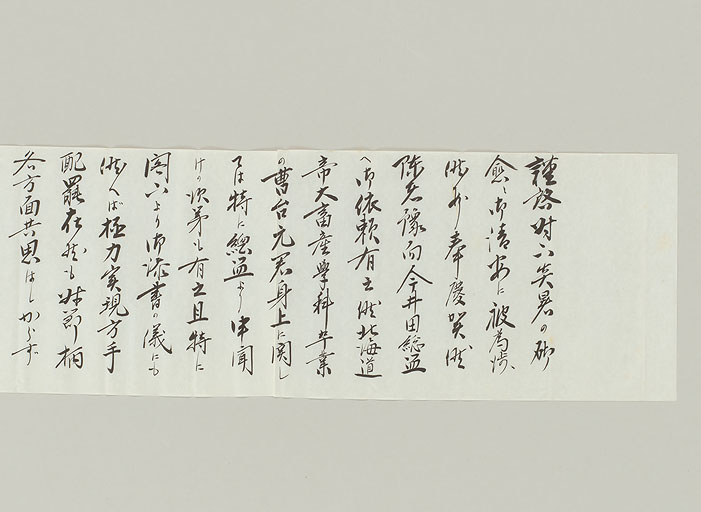 謹啓時下炎暑の砌
愈々御清安に被為渉、
候於奉慶賀候
陳者豫而今井田総監
へ御依頼有之候北海道
帝大畜産学科卒業
の曹台元君身上に関し
ては特に総監より申聞
けの次第も有之且特に
閣下より御添書の儀にも
候へば極力実現方手
配罷在候も時節柄
各方面共思はしからず